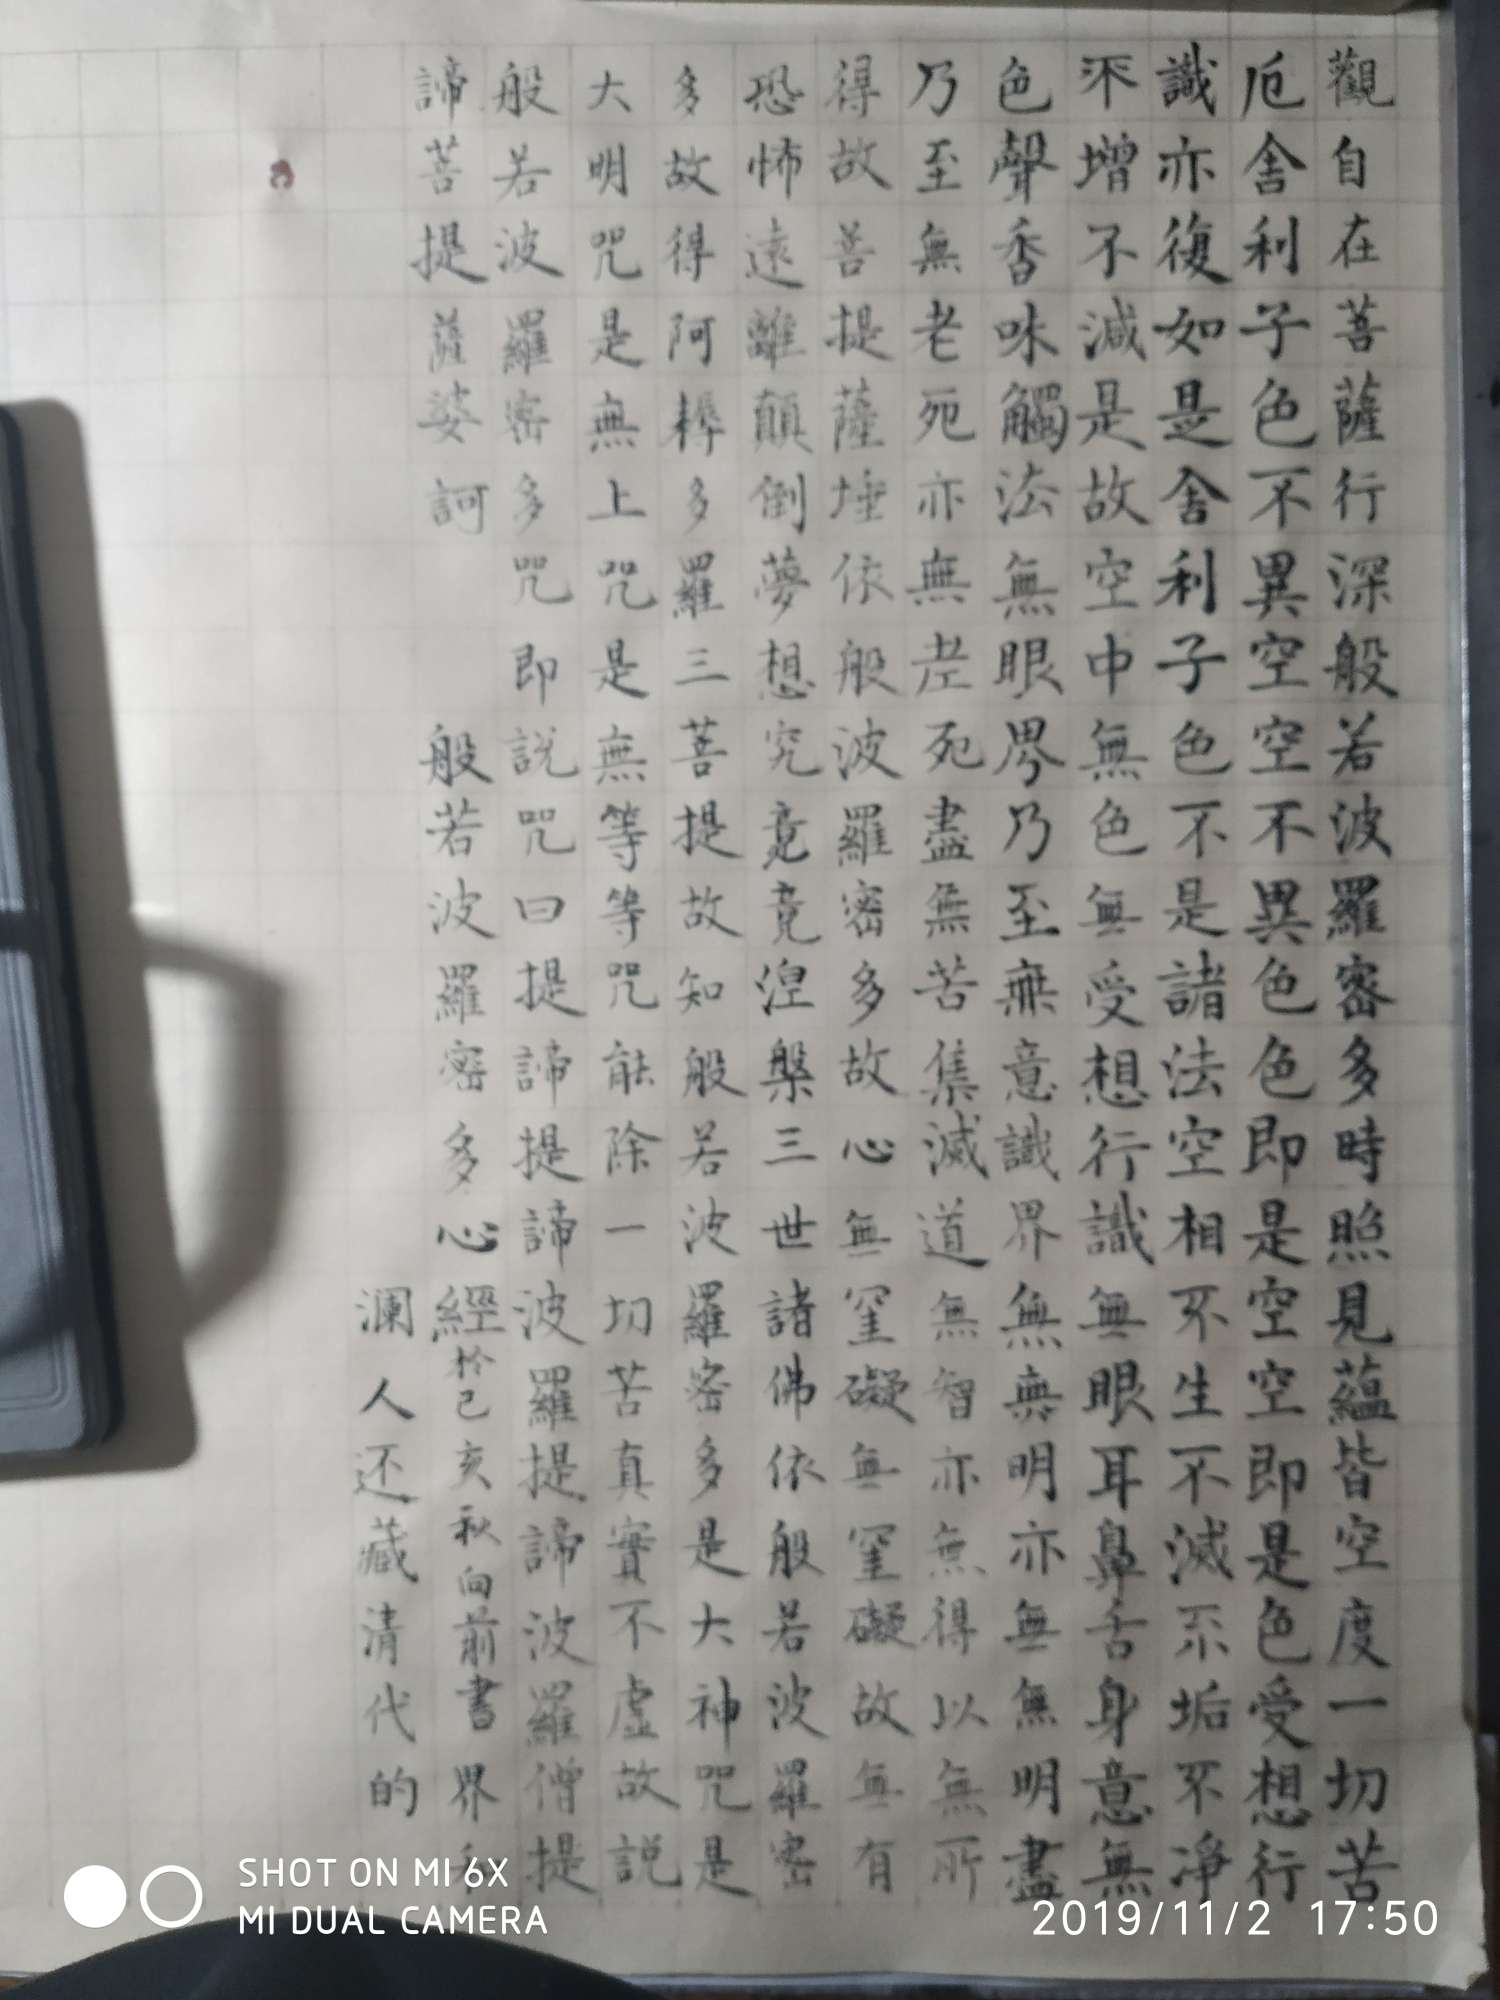 觀自在菩薩行深般若波羅密多時照見蘊皆空度一切苦
厄舍利子色不異空空不異色色即是空空即是色受想行
識亦復如是舍利子色不是諸法空相不生不滅不垢不淨
不增不減是故空中無色無受想行識無眼耳鼻舌身意無
色聲香味觸法無眼界乃至無意識界無無明亦無無明盡
乃至無老死亦無老死盡無苦集滅道無智亦無得以無所
得故菩提薩埵依般波羅密多故心無罣礙無罣礙故無有
恐怖遠離顛倒夢想究竟竟涅槃三世諸佛依般若波羅密
多故得阿耨多羅三菩提故知般若波羅密多是大神咒是
大明咒是無上咒是無等等咒能除一切苦真實不虛故説
般若波羅密多咒即説咒曰提諦提諦波羅提諦波羅僧提
諦菩提薩婆訶 般若波羅密多心經 於己亥秋向前書界
澜人还藏清代的
SHOT ON MI 6X
MI DUAL CAMERA
2019/11/2 17:50